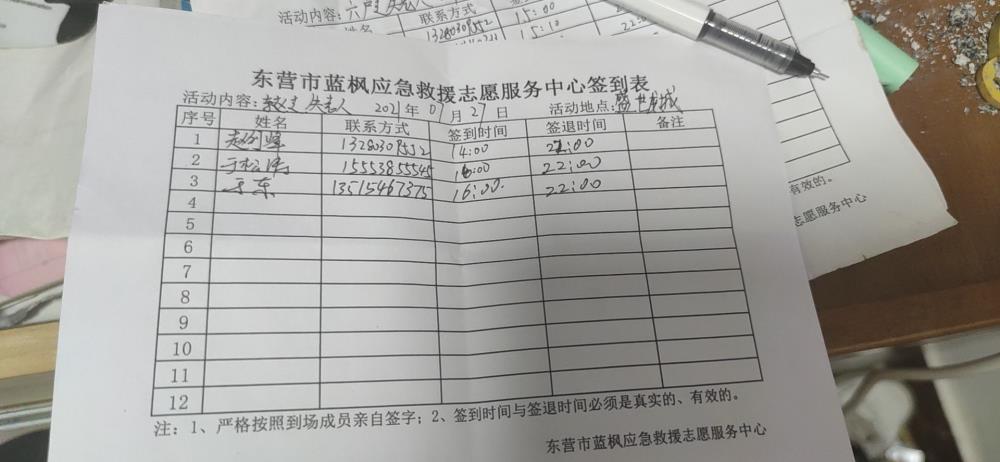 活动内容:
联系方式
15:00
15:10
东营市蓝枫应急救援志愿服务中心签到表
活动内容: 2021年07月27日 活动地点:
序号 姓名 联系方式 签到时间 签退时间 备注
1 14:00 22:00
2 于松涛 15553855545 16:00 22:00
3 于东 13515467375 16:00 22:00
4
5
6
7
8
9
10
11
12
注:1、严格按照到场成员亲自签字;2、签到时间与签退时间必须是真实的、有效的。
东营市蓝枫应急救援志愿服务中心
有效的。
志愿服务中心